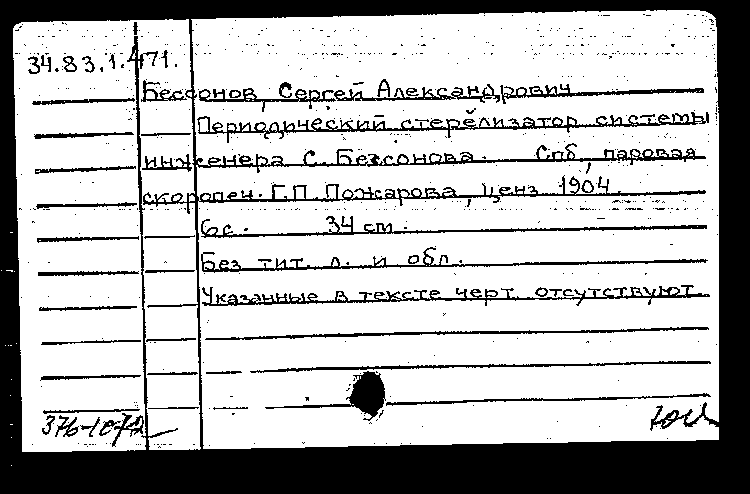 34.83.1.471.
Бессонов, Сергей Александрович
Периодический стерелизатор системы
инженера С. Бессонова. Спб, паровая
скоропеч. Г.П. Пожарова, ценз 1904.
6с. 34 см.
Без тит. л. и обл.
Указанные в тексте черт. отсутствуют